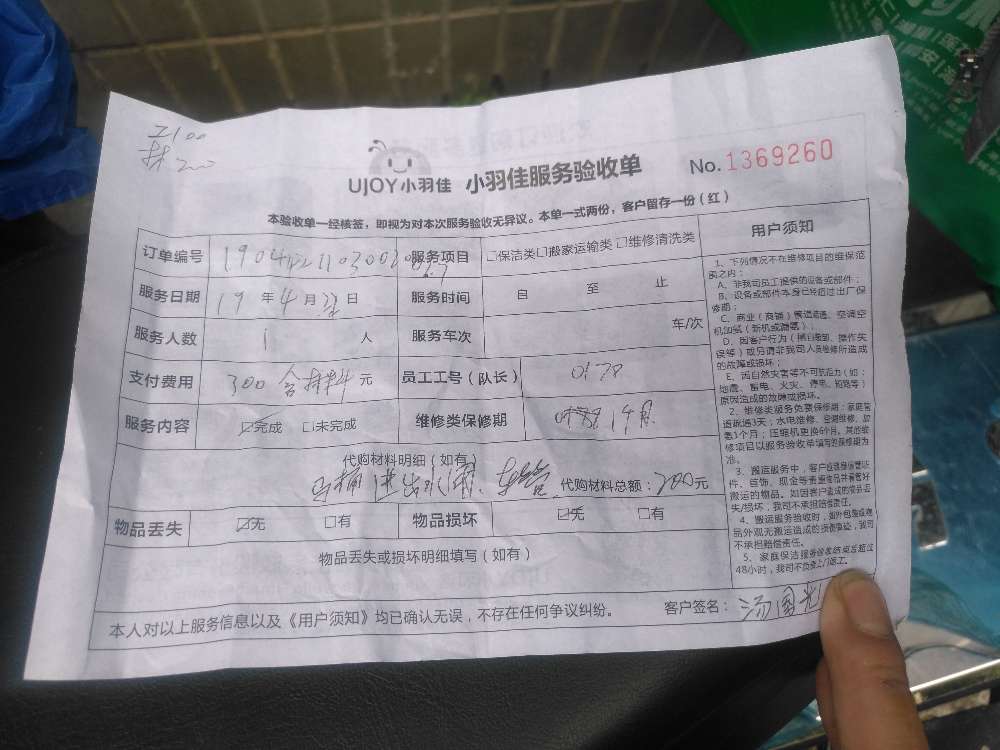 工100
材200
UJOY小羽佳 小羽佳服务验收单 No.1369260
本验收单一经核签，即视为对本次服务验收无异议。本单一式两份，客户留存一份（红）
订单编号 服务项目 □保洁类□搬家运输类□维修清洗类
服务日期 19年4月 日 服务时间 自 至 止
服务人数 1 人 服务车次 车/次
支付费用 300含材料元 员工工号（队长） 0178
服务内容 ☑完成 □未完成 维修类保修期 1个月
代购材料明细（如有）
马桶进出水阀、软管 代购材料总额：200元
物品丢失 ☑无 □有 物品损坏 ☑无 □有
物品丢失或损坏明细填写（如有）
本人对以上服务信息以及《用户须知》均已确认无误，不存在任何争议纠纷。 客户签名：汤国
用户须知
1、下列情况不在维修项目的维保范
围之内：
A、非我司员工提供的设备或部件；
B、设备或部件本身已经超过出厂保
修期；
C、商业（商铺）管道疏通、空调空
机加氨（新机或漏氨）；
D、因客户行为（擅自拆卸、操作失
误等）或另请非我司人员维修所造成
的故障或损坏；
E、因自然灾害等不可抗拒力（如：
地震、蓄电、火灾、停电、短路等）
原因造成的故障或损坏。
2、维修类服务免费保修期：家庭管
道疏通3天；水电维修、空调维修、加
氨1个月；压缩机更换6个月。其他维
修项目以服务验收单填写的保修期为
准。
3、搬运服务中，客户应该保管证
件、首饰、现金等贵重物品并看管好
搬运的物品。如因客户造成的物品丢
失/损坏，我司不承担赔偿责任。
4、搬运服务验收时，如外包装或商
品外观无搬运造成的损伤痕迹，我司
不承担赔偿责任。
5、家庭保洁服务验收结束后超过
48小时，我司不负责上门返工。